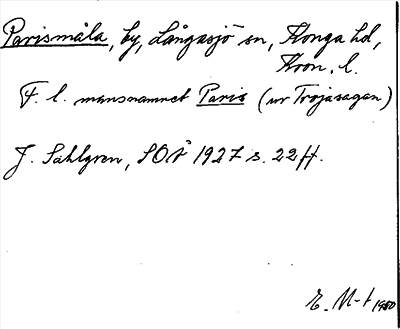 Parismåla, by, Långasjö sn, Konga hd,
Kron. l.
F. l. mansnamnet Paris (ur Trojasagan)
J. Sahlgren, SOÅ 1927 s. 22 ff.
E. M-t 1980